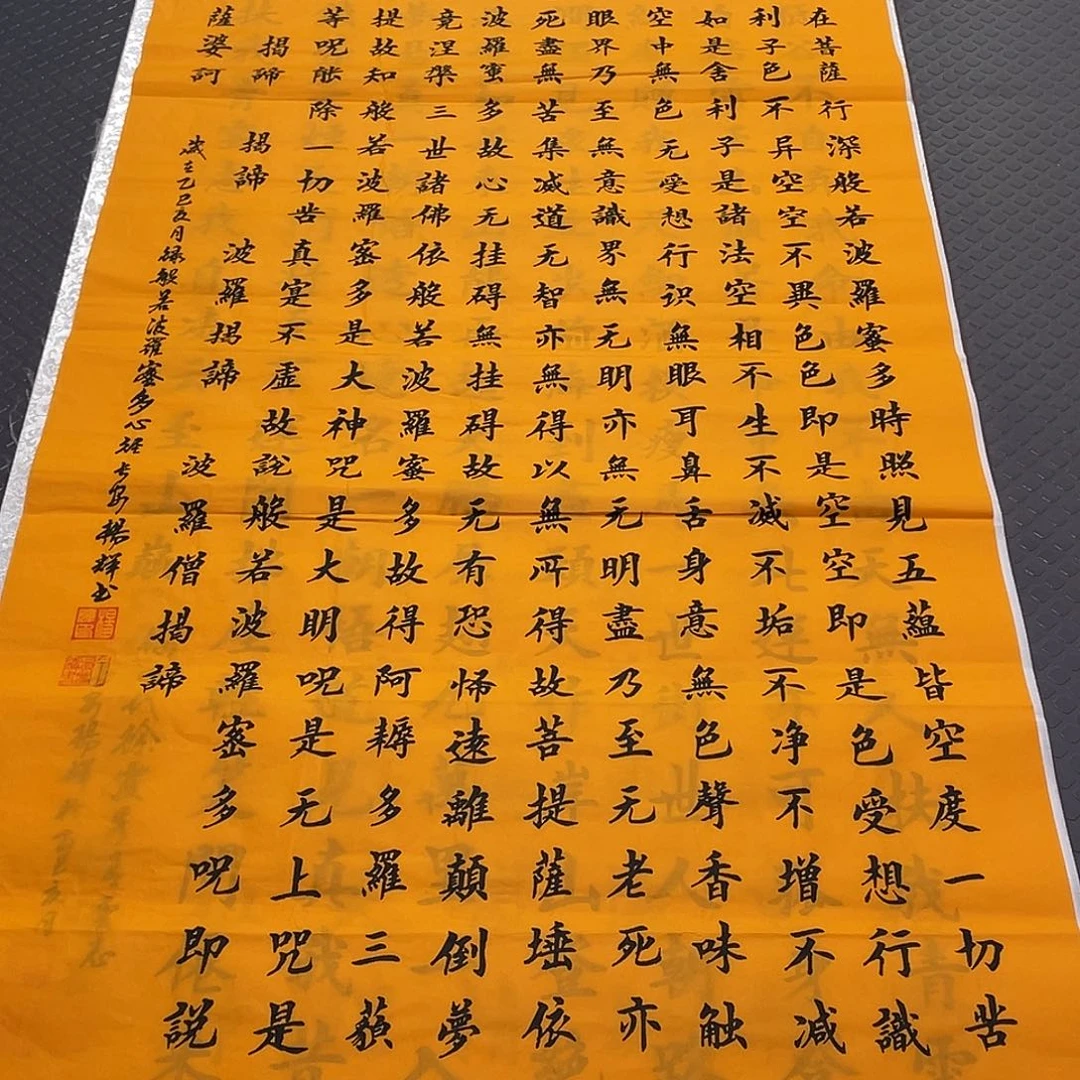 在菩薩行深般若波羅蜜多時照見五蘊皆空度一切苦
利子色不异空空不異色色即是空空即是色受想行識
如是舍利子是諸法空相不生不滅不垢不净不增不減
空中無色无受想行识無眼耳鼻舌身意無色聲香味触
眼界乃至無意識界無无明亦無无明盡乃至无老死亦
死盡無苦集滅道无智亦無得以無所得故菩提薩埵依
波羅蜜多故心无挂碍無挂碍故无有恐怖遠離顛倒夢
竟涅槃三世諸佛依般若波羅蜜多故得阿耨多羅三藐
提故知般若波羅密多是大神咒是大明呪是无上咒是
等呪能除一切苦真寔不虛故說般若波羅密多呪即説
揭諦揭諦波羅揭諦波羅僧揭諦
薩婆訶
歲在乙巳五月録般若波羅密多心经長安楊輝书